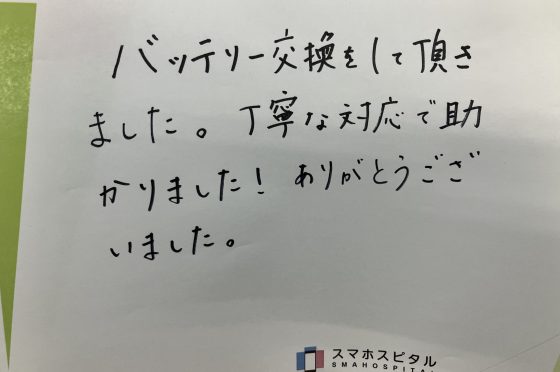 バッテリー交換をして頂き
ました。丁寧な対応で助
かりました！ありがとうござ
いました。
スマホスピタル
SMAHOSPITAL